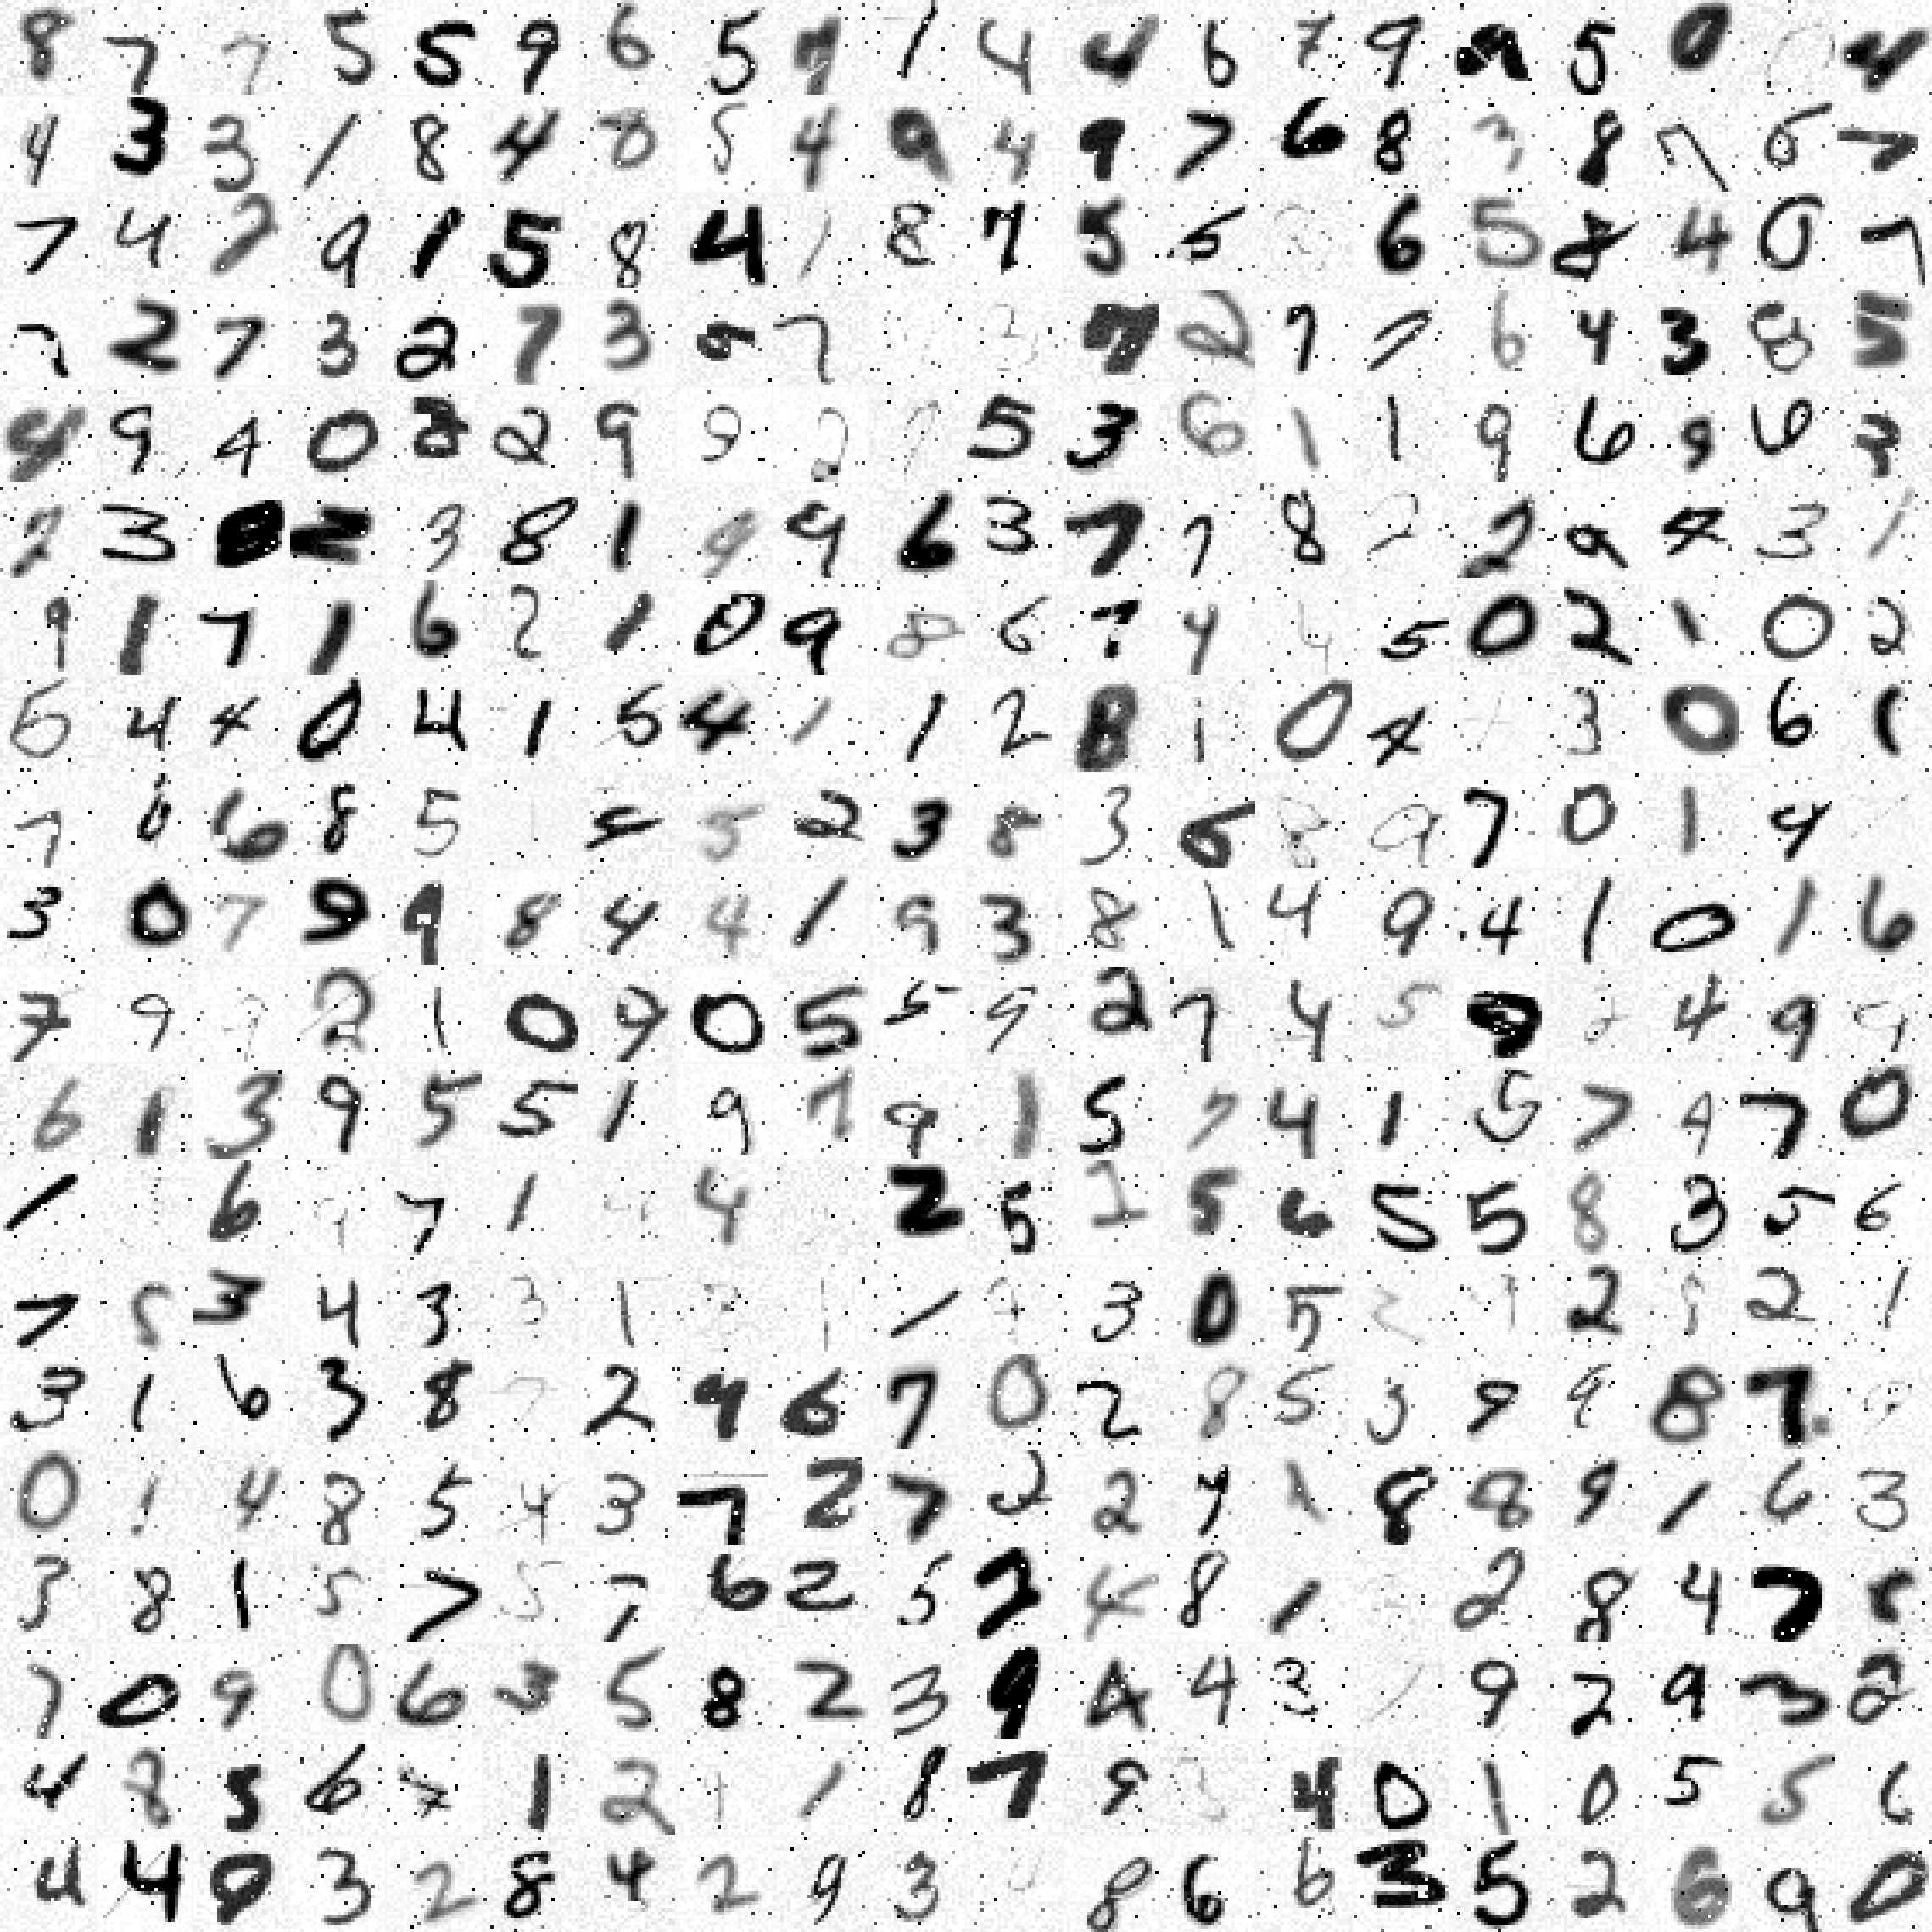 8 7 7 5 5 9 6 5 7 1 4 4 6 7 9 9 5 0 0 4
4 3 3 1 8 4 8 5 4 9 4 9 7 6 8 3 8 7 6 7
7 4 7 9 1 5 8 4 1 8 7 5 5 6 5 8 4 0 7
7 2 7 3 2 7 3 9 7 3 7 2 7 7 6 4 3 8 5
9 9 4 0 2 2 9 9 2 7 5 3 6 1 1 9 6 9 6 3
2 3 8 2 3 8 1 9 9 6 3 7 7 8 2 2 9 4 3 1
9 1 7 1 6 2 1 0 9 8 6 7 4 4 5 0 2 1 0 2
5 4 4 0 4 1 5 4 1 1 2 8 1 0 4 3 0 6 1
7 6 8 5 1 5 5 2 3 8 3 6 8 9 7 0 1 4
3 0 7 9 9 8 4 4 1 9 3 8 1 4 9 4 1 0 1 6
7 9 9 2 1 0 9 0 5 5 9 2 7 4 5 9 2 4 9 9
6 1 3 9 5 5 1 9 7 9 1 5 7 4 1 5 7 4 7 0
1 6 9 7 1 4 4 2 5 1 5 6 5 5 8 3 5 6
7 5 3 4 3 3 1 1 1 3 0 5 2 9 2 8 2 1
3 1 6 3 8 7 2 9 6 7 0 2 8 5 3 9 9 8 7
0 1 4 8 5 4 3 7 2 7 2 2 4 1 8 8 9 1 6 3
3 8 1 5 7 5 7 6 2 5 2 4 8 1 2 8 4 7 8
7 0 9 0 6 3 5 8 2 3 9 4 4 3 9 2 9 3 2
4 8 5 6 7 1 2 1 1 8 7 9 3 4 0 1 0 5 5 6
4 4 0 3 2 8 4 2 9 3 0 8 6 6 3 5 2 6 9 0